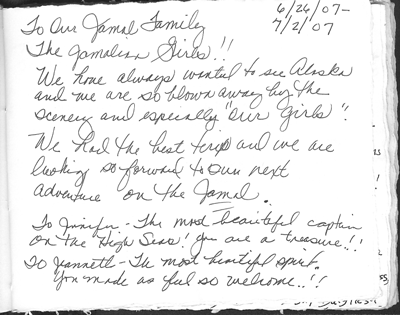 6/26/07-
7/2/07
To Our Jamal Family
The Jamalian Girls!!
We have always wanted to see Alaska
and we are so blown away by the
scenery and especially "Our Girls".
We had the best trip and we are
looking so forward to our next
adventure on the Jamal.
To Jennifer - The most beautiful captain
on the High Seas! You are a treasure!!
To Jeannett - The most beautiful spirit.
You made us feel so welcome..!!